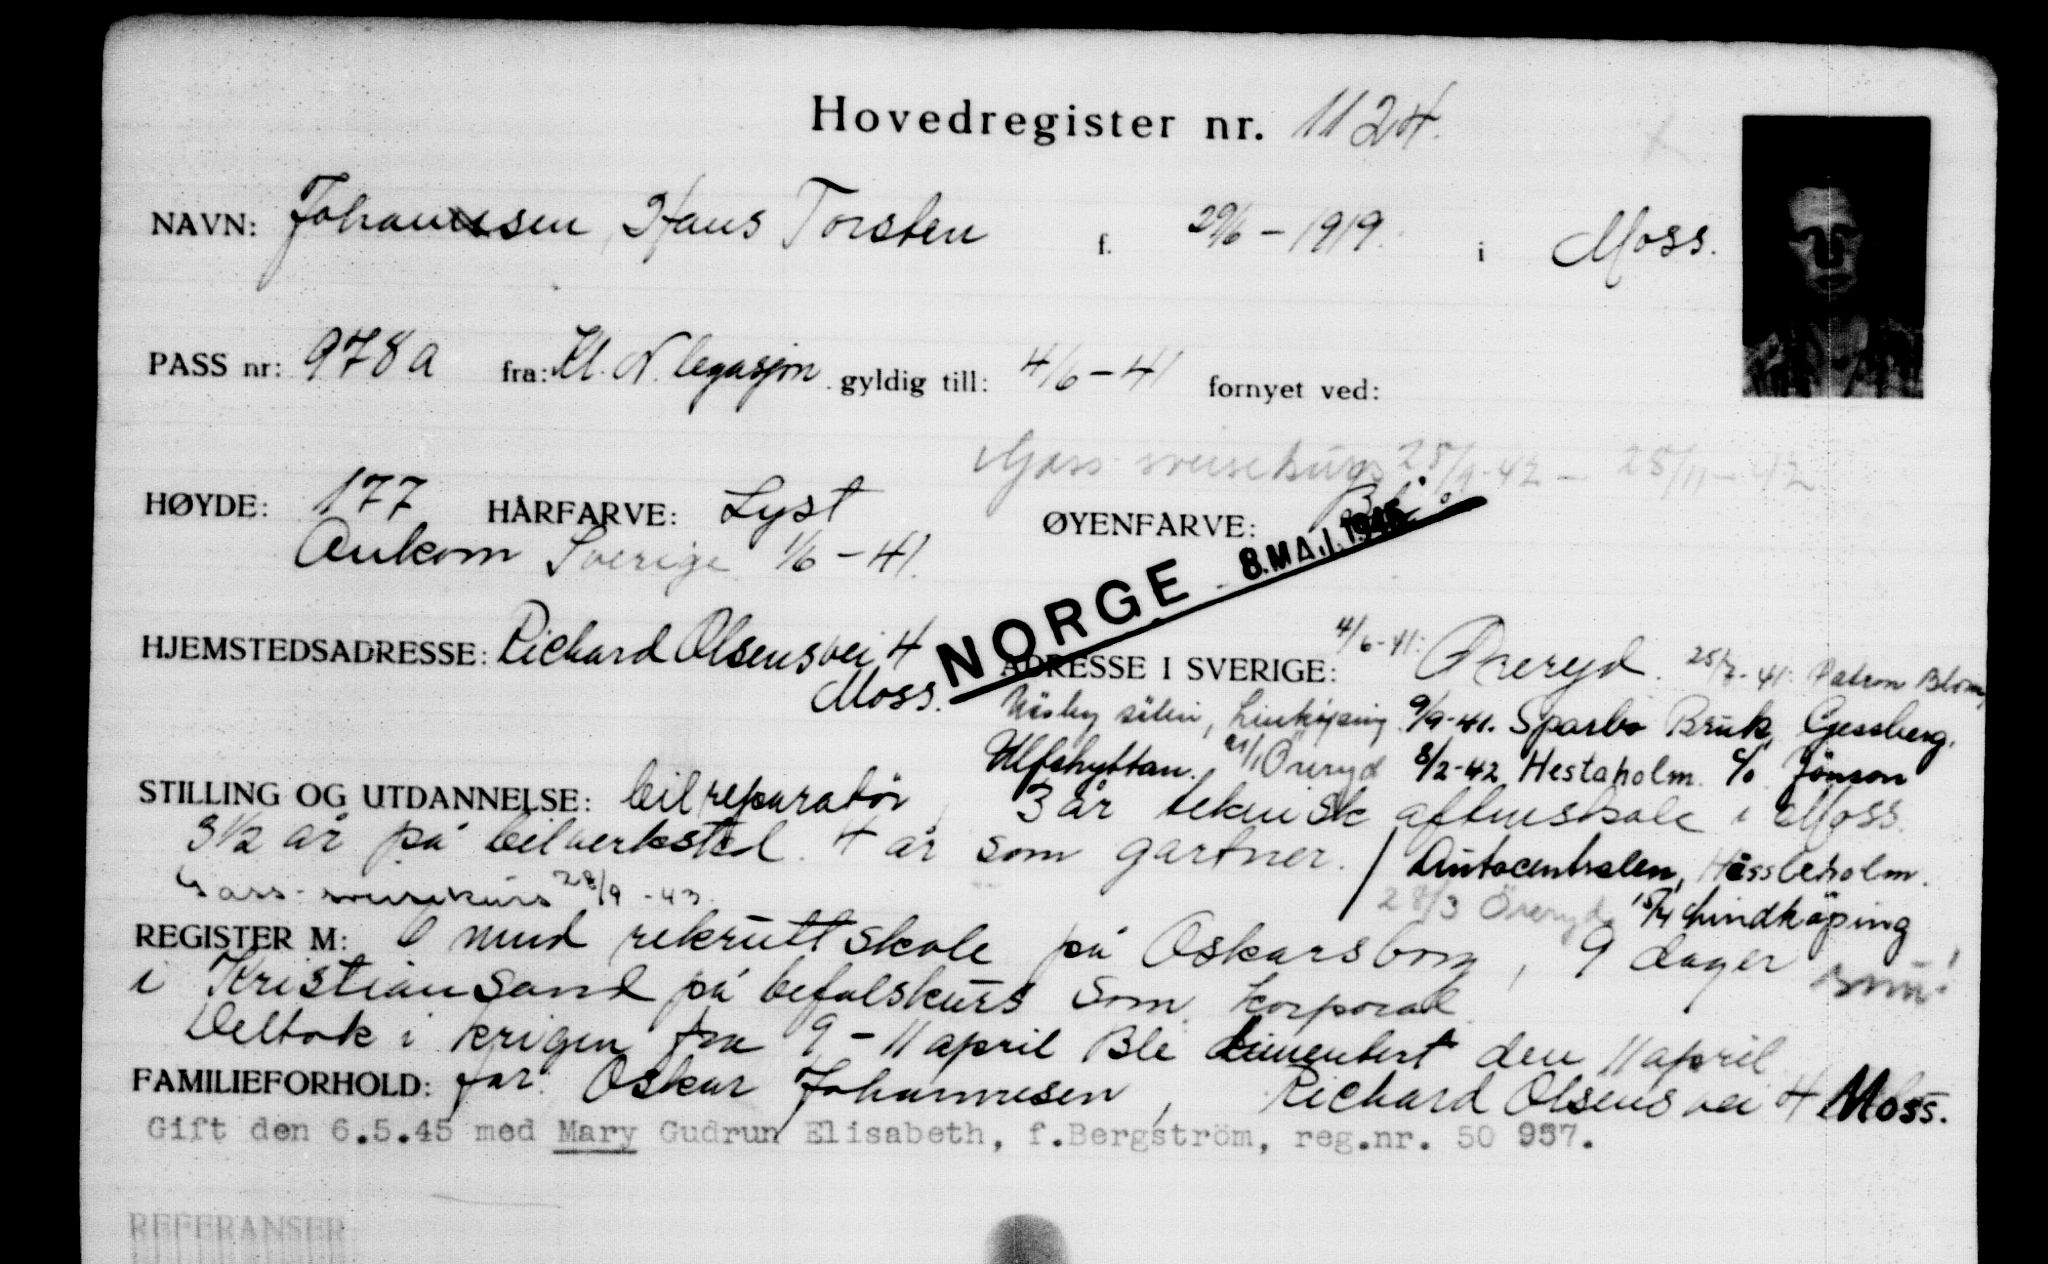 Hovedregister nr. 1124.
NAVN: Johannsen, Hans Torsten f. 29/6 - 1919. i Moss.
PASS nr: 978a fra: Kl. N. legasjon gyldig till: 4/6 - 41 fornyet ved:
Gass sveisekurs 25/9-42 - 25/11-42
HØYDE: 177 HÅRFARVE: Lyst ØYENFARVE: Blå
Ankom Sverige 1/6 - 41.
NORGE 8. MAJ. 1945
HJEMSTEDSADRESSE: Richard Olsens vei 4 Moss.
ADRESSE I SVERIGE: 4/6-41: Öreryd. 25/7-41: Patron Blom,
Linköping 9/9-41. Sparbo Bruk, Gessberg.
Ulfshyttan. 21/1 Öreryd 8/2-42 Hestaholm. c/o Jönson
STILLING OG UTDANNELSE: bilreparatør, 3 år teknisk aftenskole i Moss.
3 1/2 år på bilverksted. 4 år som gartner. / Autocentralen, Hessleholm.
Gass-sveisekurs 28/9 -43. 28/3 Öreryd 15/4 Lindköping
REGISTER M: 6 mnd rekruttskole på Oskarsborg, 9 dager
i Kristiansand på befalskurs som korporal.
Deltok i krigen fra 9 - 11 april Ble dimentert den 11 april
FAMILIEFORHOLD: far: Oskar Johannesen, Richard Olsens vei 4 Moss.
Gift den 6.5.45 med Mary Gudrun Elisabeth, f.Bergström, reg.nr. 50 957.
REFERANSER: